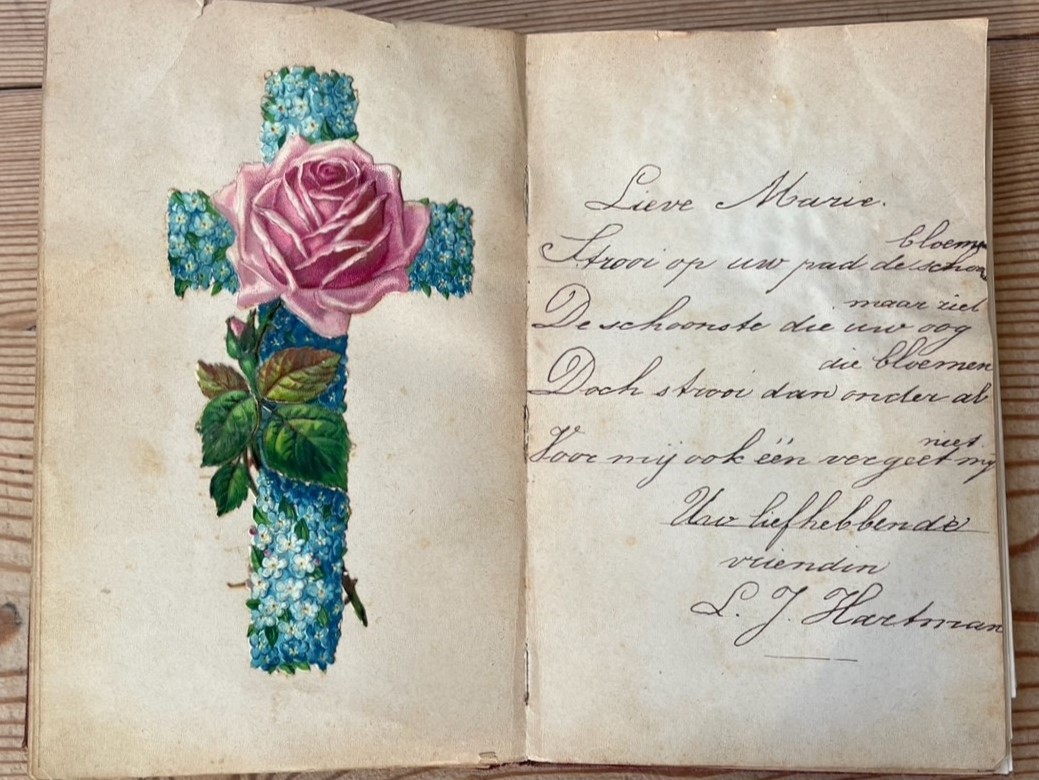 Lieve Marie.
bloem
Strooi op uw pad de schon
maar ziel
De schoonste die uw oog
die bloemen
Doch strooi dan onder al
niet
Voor mij ook één vergeet my
Uw liefhebbende
vriendin
L. J. Hartman